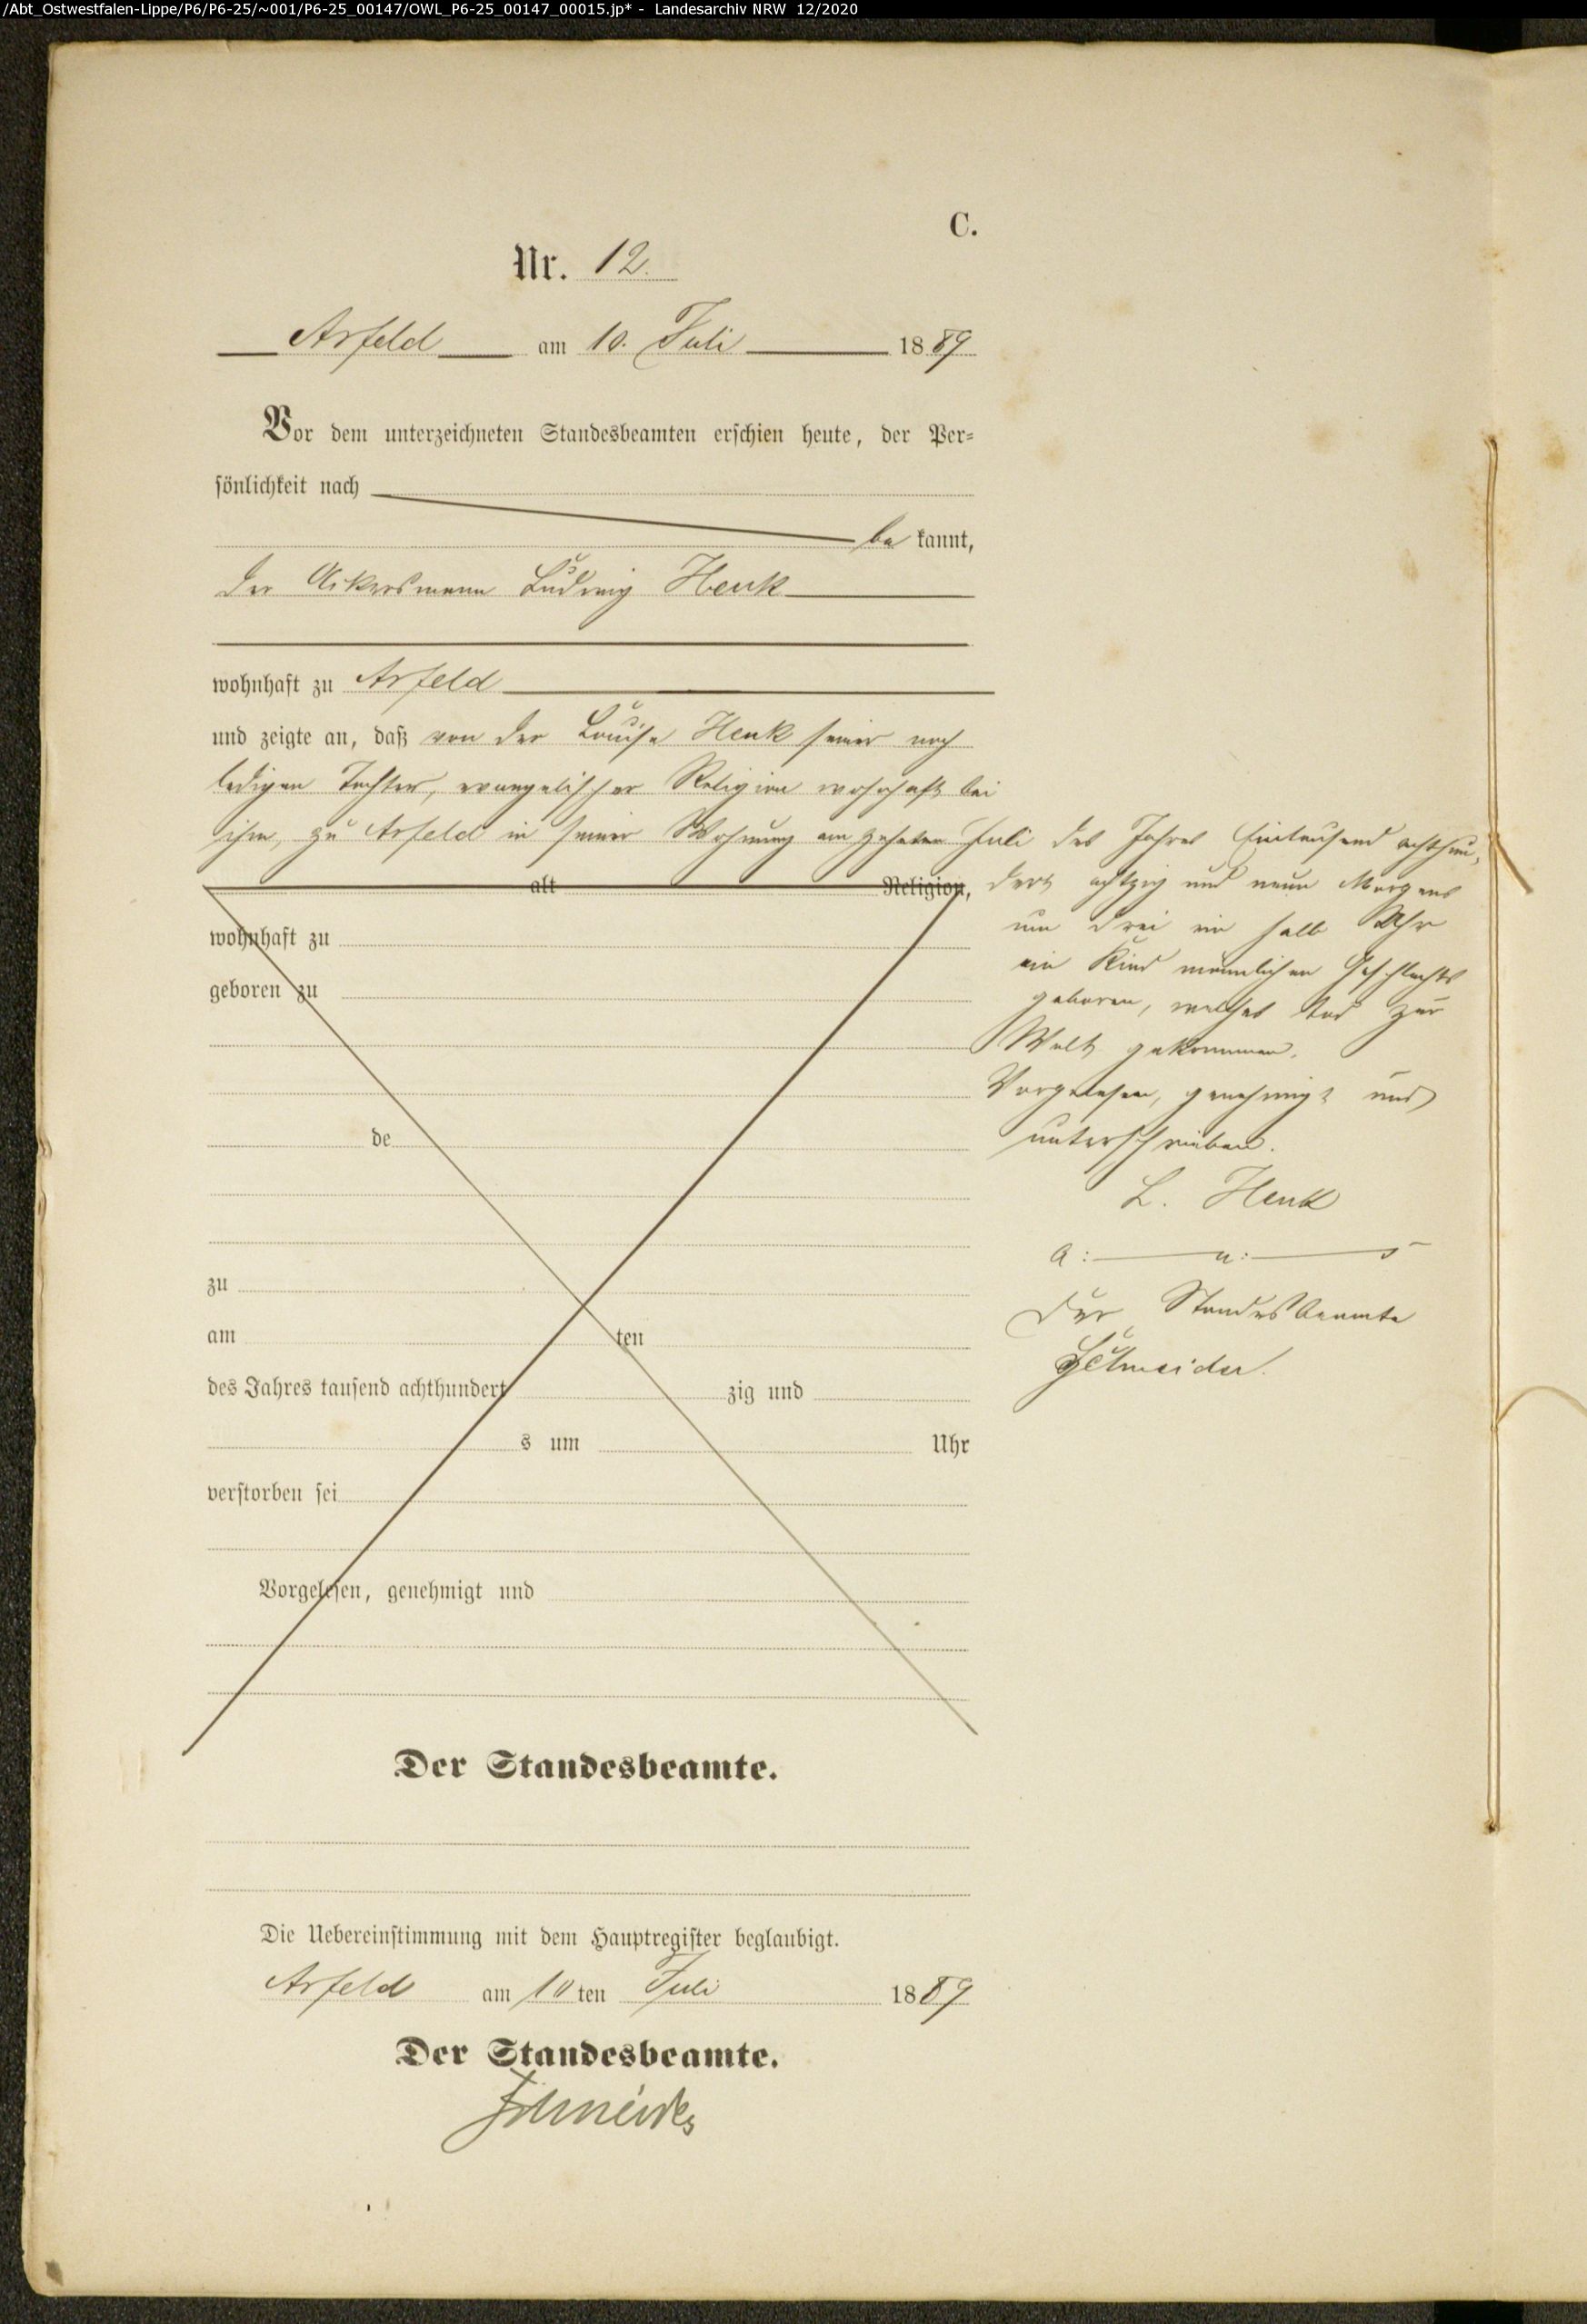 /Abt_Ostwestfalen-Lippe/P6/P6-25/~001/P6-25_00147/OWL_P6-25_00147_00015.jp* - Landesarchiv NRW 12/2020
C.
Nr. 12.
Arfeld am 10. Juli 1889
Vor dem unterzeichneten Standesbeamten erschien heute, der Per-
sönlichkeit nach
be kannt,
der Ackersmann Ludwig Henk
wohnhaft zu Arfeld
und zeigte an, daß von der Louise Henk seiner noch
ledigen Tochter, evangelischer Religion wohnhaft bei
ihm, zu Arfeld in seiner Wohnung am zehnten Juli des Jahres Eintausend achthun-
alt Religion, dert achtzig und neun Morgens
um drei ein halb Uhr
wohnhaft zu
ein Kind männlichen Geschlechts
geboren zu
geboren, welches todt zur
Welt gekommen.
Vorgelesen, genehmigt und
de
unterschrieben.
L. Henk
a: u: s
zu
Der Standesbeamte
am ten
Schneider.
des Jahres tausend achthundert zig und
s um Uhr
verstorben sei
Vorgelesen, genehmigt und
Der Standesbeamte.
Die Uebereinstimmung mit dem Hauptregister beglaubigt.
Arfeld am 10 ten Juli 1889
Der Standesbeamte.
Schneider